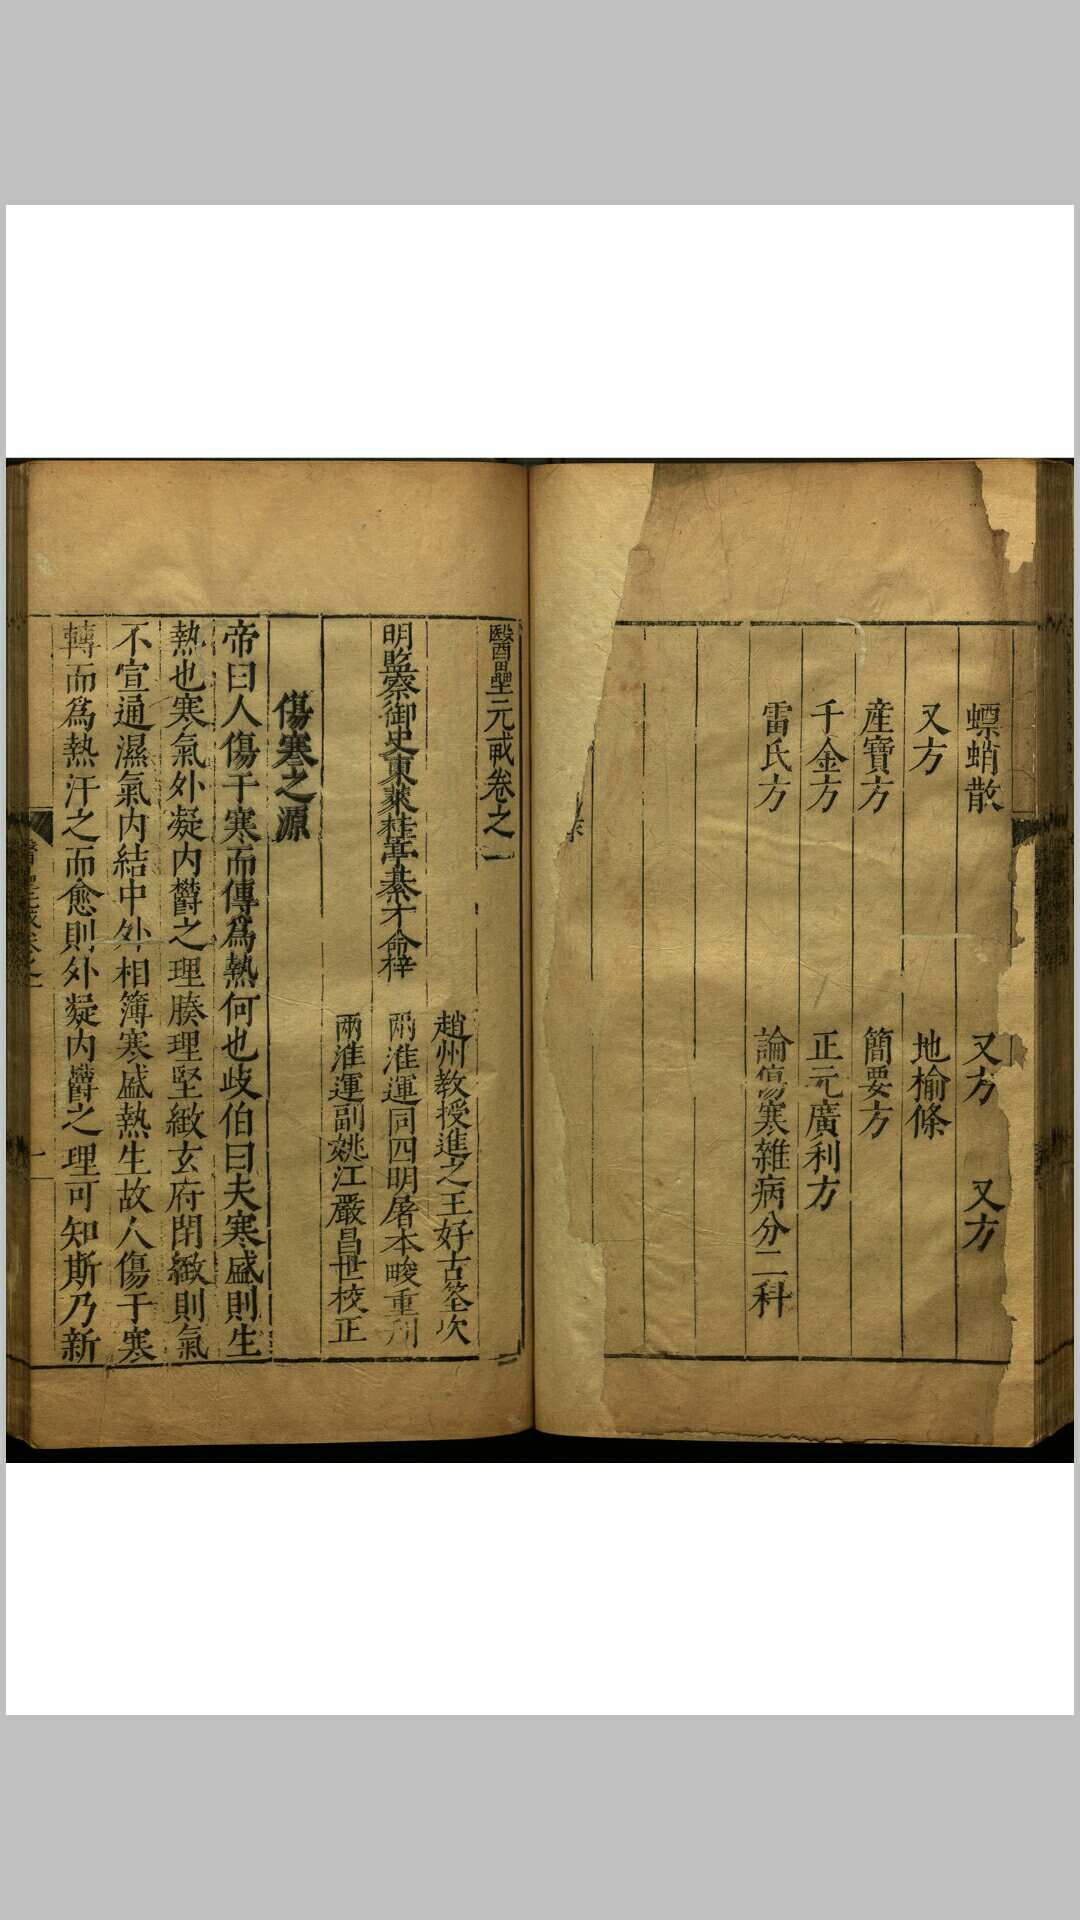 螵蛸散 又方 又方
又方 地榆條
産寶方 簡要方
千金方 正元廣利方
雷氏方 論傷寒雜病分二科
醫壘元戒卷之一
趙州教授進之王好古筌次
明監察御史東萊桂亭綦才命梓 兩淮運同四明屠本畯重刊
兩淮運副姚江嚴昌世校正
傷寒之源
帝曰人傷于寒而傳爲熱何也歧伯曰夫寒盛則生
熱也寒氣外凝内欝之理腠理堅緻玄府閉緻則氣
不宣通濕氣内結中外相簿寒盛熱生故人傷于寒
轉而爲熱汗之而愈則外凝内欝之理可知斯乃新